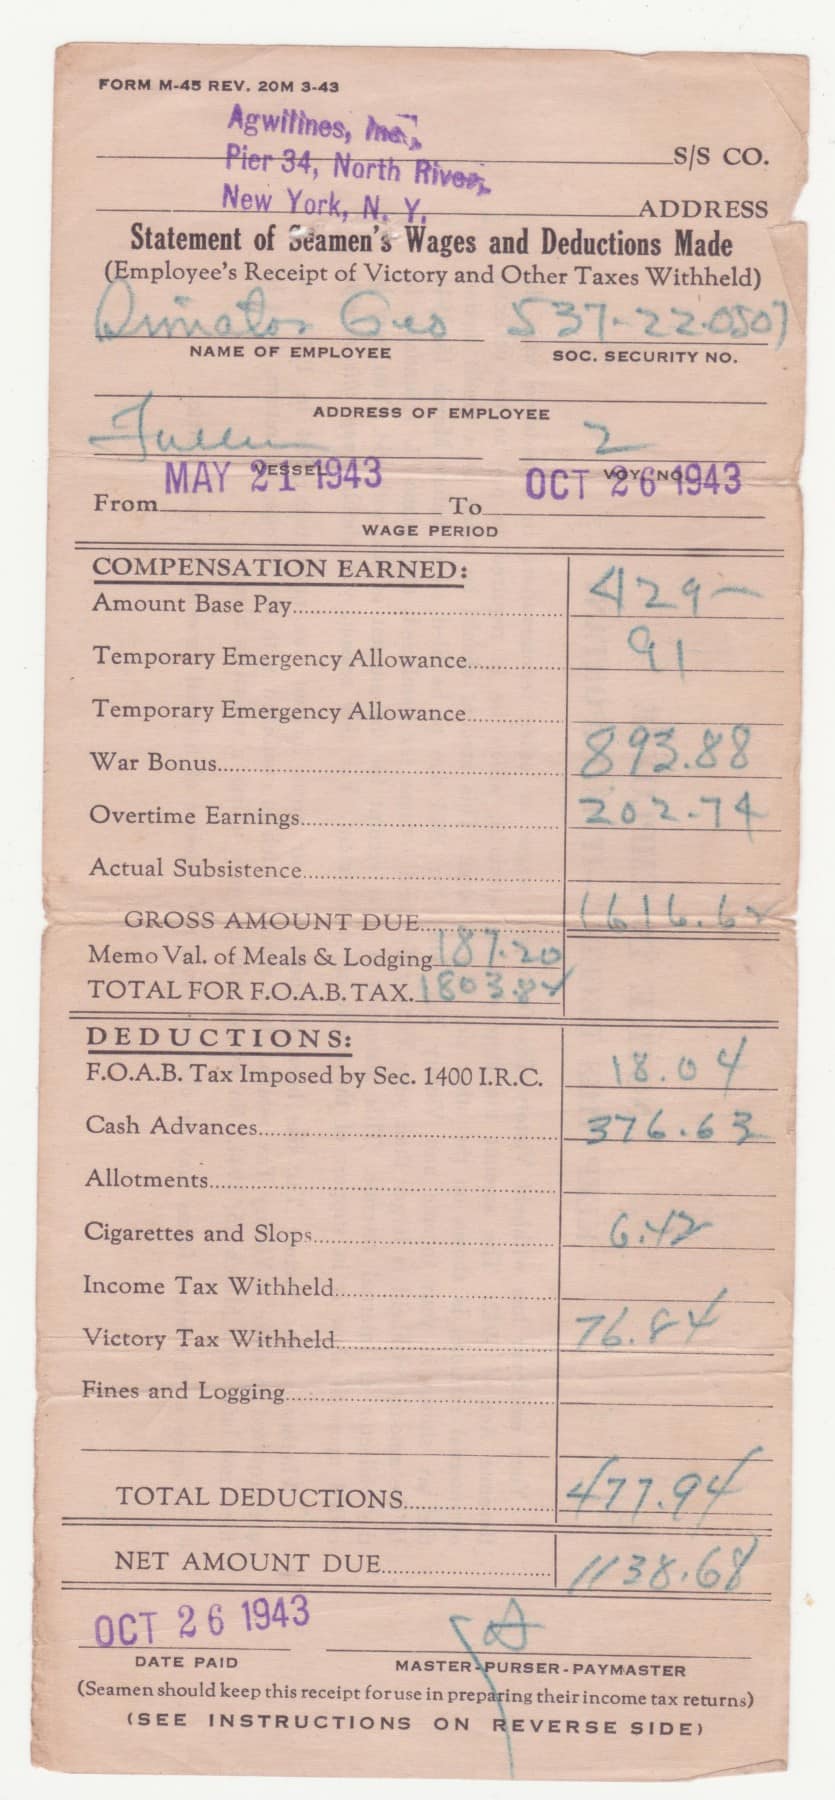 FORM M-45 REV. 20M 3-43
Agwilines, Inc.,
S/S CO.
Pier 34, North River,
New York, N. Y.
ADDRESS
Statement of Seamen's Wages and Deductions Made
(Employee's Receipt of Victory and Other Taxes Withheld)
Dimatos Geo 537-22-0507
NAME OF EMPLOYEE SOC. SECURITY NO.
ADDRESS OF EMPLOYEE
2
VESSEL VOY. NO.
MAY 21 1943 OCT 26 1943
From To
WAGE PERIOD
COMPENSATION EARNED:
Amount Base Pay 429—
Temporary Emergency Allowance 91
Temporary Emergency Allowance
War Bonus 893.88
Overtime Earnings 202.74
Actual Subsistence
GROSS AMOUNT DUE 1616.62
Memo Val. of Meals & Lodging 187.20
TOTAL FOR F.O.A.B. TAX. 1803.82
DEDUCTIONS:
F.O.A.B. Tax Imposed by Sec. 1400 I.R.C. 18.04
Cash Advances 376.63
Allotments
Cigarettes and Slops 6.42
Income Tax Withheld
Victory Tax Withheld 76.84
Fines and Logging
TOTAL DEDUCTIONS 477.94
NET AMOUNT DUE 1138.68
OCT 26 1943
DATE PAID MASTER-PURSER-PAYMASTER
(Seamen should keep this receipt for use in preparing their income tax returns)
(SEE INSTRUCTIONS ON REVERSE SIDE)